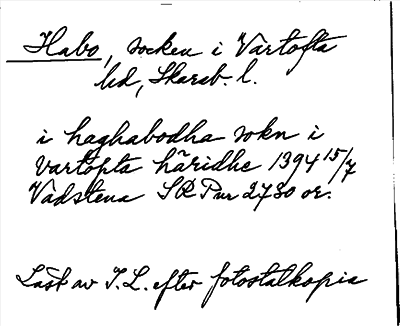 Habo, socken i Vartofta
hd, Skarab. l.
i haghabodha sokn i
vartopta häridhe 1394 15/7
Vadstena SRPnr 2730 or.
Läst av I. L. efter fotostatkopia